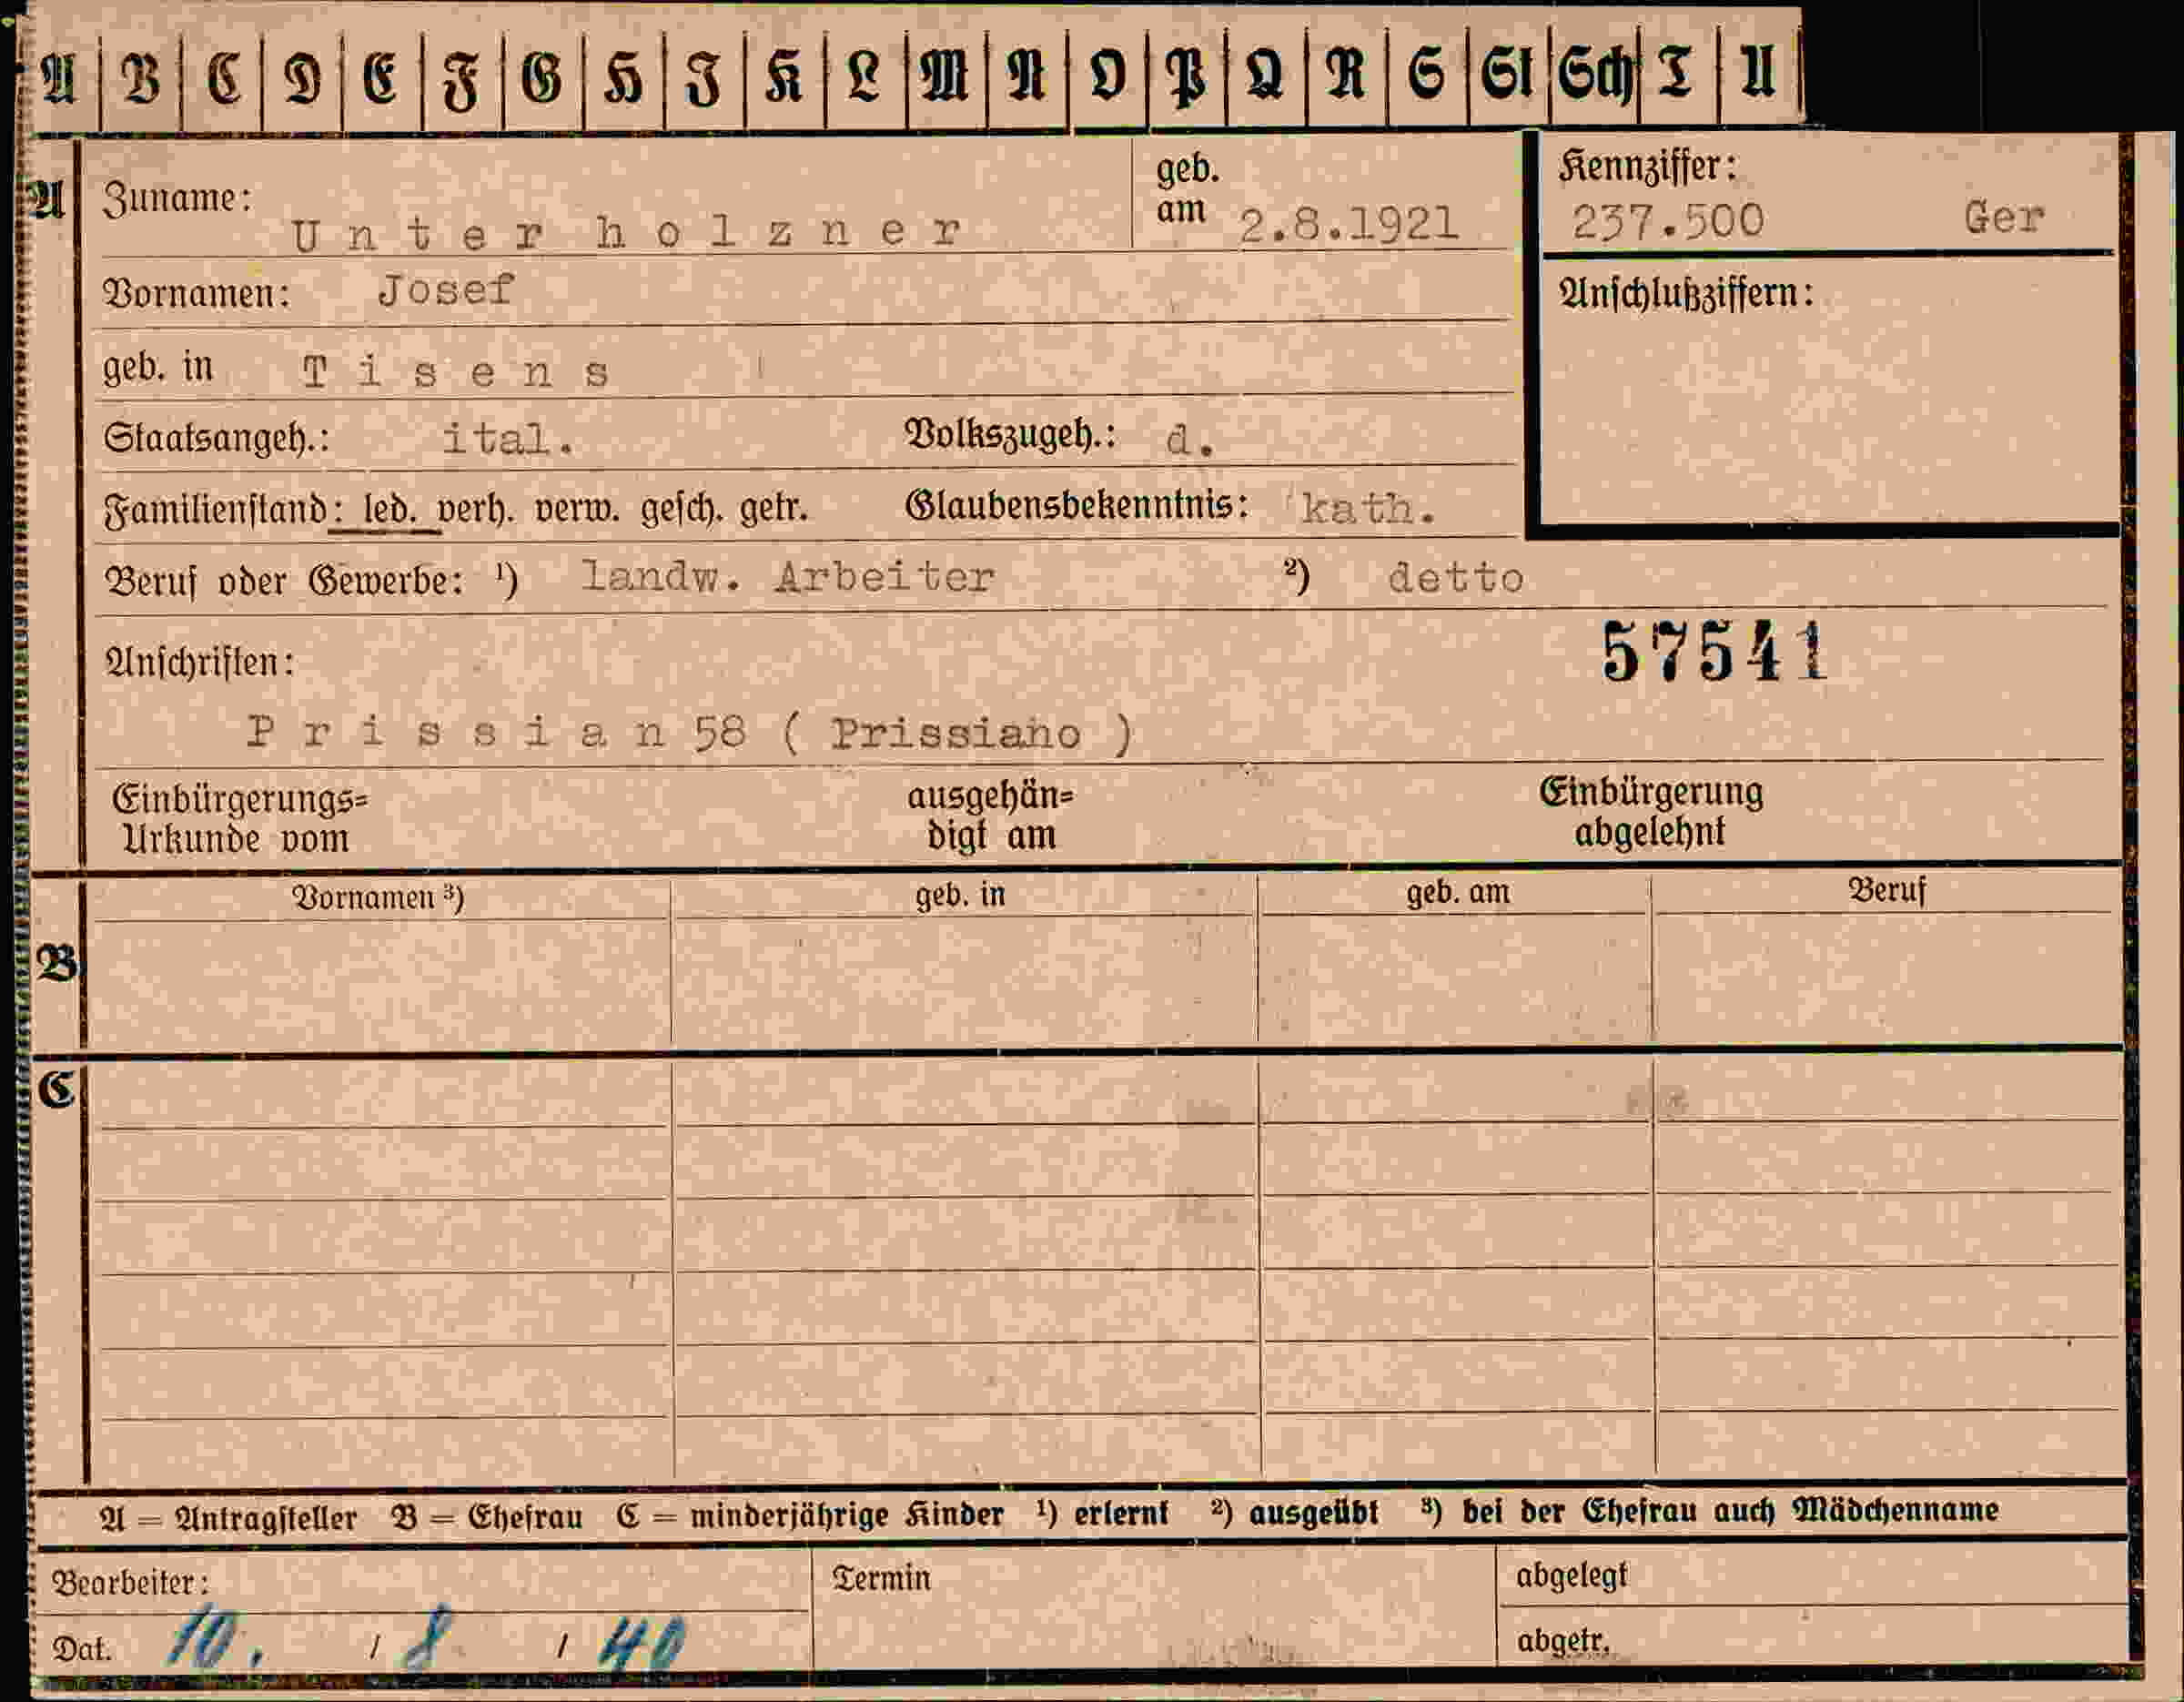 A B C D E F G H I K L M N O P Q R S St Sch T U
A Zuname: Unterholzner geb. am 2.8.1921 Kennziffer: 237.500 Ger
Vornamen: Josef Anschlußziffern:
geb. in Tisens
Staatsangeh.: ital. Volkszugeh.: d.
Familienstand: led. verh. verw. gesch. getr. Glaubensbekenntnis: kath.
Beruf oder Gewerbe: ¹) landw. Arbeiter ²) detto
Anschriften: 57541
Prissian 58 ( Prissiano )
Einbürgerungs= ausgehän= Einbürgerung
Urkunde vom digt am abgelehnt
Vornamen ³) geb. in geb. am Beruf
B
C
A = Antragsteller B = Ehefrau C = minderjährige Kinder ¹) erlernt ²) ausgeübt ³) bei der Ehefrau auch Mädchenname
Bearbeiter: Termin abgelegt
Dat. 10. / 8 / 40 abgetr.